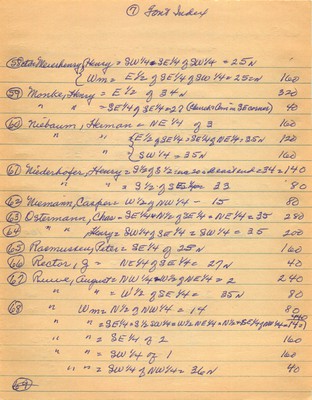 ⑦ Font Index
Henry = SW¼ = SE¼ of SW¼ = 25 N
Wm = E½ of SE¼ of SW¼ = 25 = N 160
59 Monke, Henry = E½ of 34 N 320
" " = SE¼ of SE¼ = 27 (Church Cem in SE corner) 40
60 Niebaum, Herman = NE¼ of 3 160
" " E½ of SE¼ = SE¼ of NE¼ = 35 N 120
" " SW¼ = 35 N 160
61 Niederhofer, Henry = 34 = 140
" " = S½ of 33 80
62 Niemann, Casper = W½ of NW¼ - 15 80
63 Ostermann, Chas = SE¼ = N½ of SE¼ = NE¼ = 35 280
64 " Henry = SW¼ of SE¼ = SW¼ = 35 200
65 Rasmussen, Peter = SE¼ of 25 N 160
66 Rector, J = NE¼ of SE¼ = 27 N 40
67 Ruwe, August = NW¼ = W½ of NE¼ = 2 240
" " = W½ of SE¼ - 35 N 80
68 " Wm = N½ of NW¼ = 14 80
" " = SE¼ = S½ SW¼ = W½ NE¼ = N½ = SE¼ of NW¼ = 1
" " = SE¼ of 2 160
" " = SW¼ of 1 160
" " = SW¼ of NW¼ = 36 N 40
69